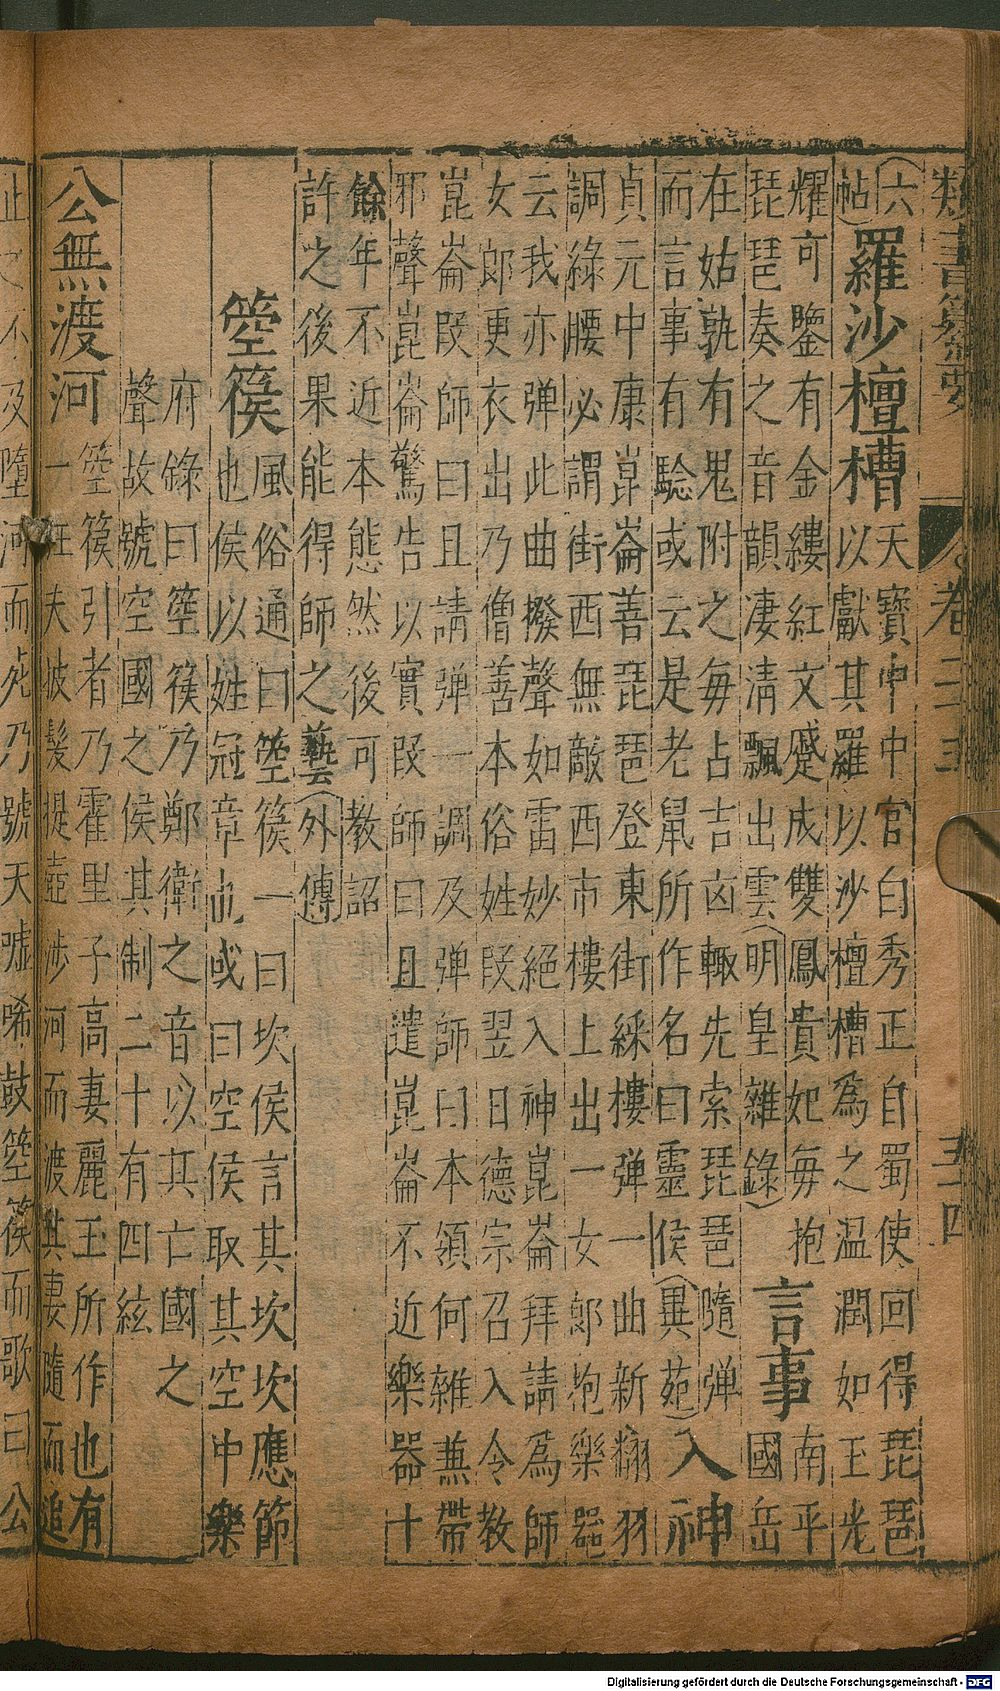 類書纂要 卷二三 五四
(六帖)
羅沙檀槽
天寶中中官白秀正自蜀使回得琵琶
以獻其羅以沙檀槽為之温潤如玉光
耀可鑒有金縷紅文蹙成雙鳳貴妃每抱
琵琶奏之音韻凄清飄出雲(明皇雜錄)
言事
南平
國岳
在姑孰有鬼附之每占吉凶輙先索琵琶隨弹
而言事有驗或云是老鼠所作名曰靈侯(異苑)
入神
貞元中康崑崙善琵琶登東街綵樓弹一曲新翻羽
調綠腰必謂街西無敵西市樓上出一女郎抱樂器
云我亦弹此曲撥聲如雷妙絕入神崑崙拜請為師
女郎更衣出乃僧善本俗姓段翌日德宗召入令教
崑崙段師曰且請弹一調及弹師曰本領何雜兼帶
邪聲崑崙驚告以實段師曰且遣崑崙不近樂器十
餘年不近本態然後可教詔
許之後果能得師之藝(外傳)
箜篌
風俗通曰箜篌一曰坎侯言其坎坎應節
也侯以姓冠章也或曰空侯取其空中樂
府錄曰箜篌乃鄭衛之音以其亡國之
聲故號空國之侯其制二十有四絃
公無渡河
箜篌引者乃霍里子高妻麗玉所作也有
一狂夫披髮提壺涉河而渡其妻隨而追
止之不及墮河而死乃號天噓唏鼓箜篌而歌曰公
Digitalisierung gefördert durch die Deutsche Forschungsgemeinschaft - DFG